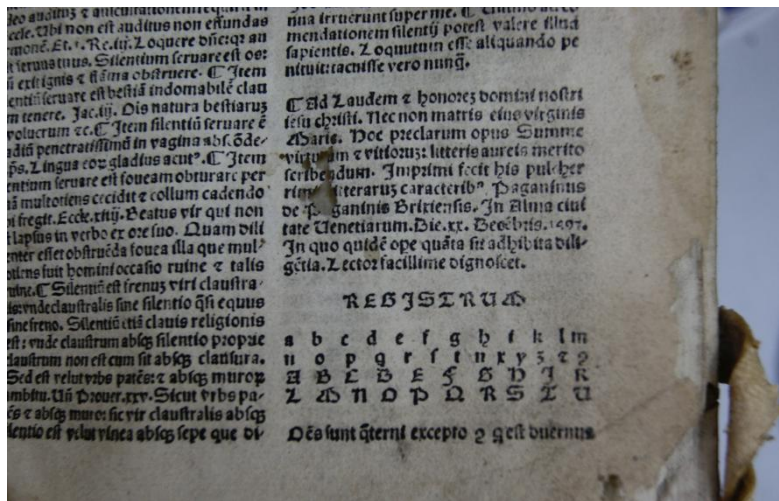 leo auditus ⁊ auscultationem requirit in
eccle. Ubi non est auditus non effundas
rmonē. Et. 1. Re. iij. Loquere dn̄e: qꝛ au
t seruus tuus. Silentium seruare est os:
exit ignis ⁊ flāma obstruere. ¶ Item
entiū seruare est bestiā indomabilē clau
m tenere. Jac. iij. Ois natura bestiaruꝫ
volucrum ⁊c. ¶ Item silentiū seruare ē
adiū penetrantissimū in vagina abscōde-
ps. Lingua eoꝝ gladius acutꝰ. ¶ Item
entium seruare est foueam obturare per
ā multotiens cecidit ⁊ collum cadendo
i fregit. Eccle. xiiij. Beatus vir qui non
t lapsus in verbo ex ore suo. Quam dili
enter esset obstruēda fouea illa que mul-
otiens fuit homini occasio ruine ⁊ talis
ruine. ¶ Silentiū est frenuꝫ viri claustra-
is: vnde claustralis sine silentio q̄si equus
sine freno. Silentiū etiā clauis religionis
est: vnde claustrum absqꝫ silentio proprie
claustrum non est cum sit absqꝫ clausura.
Sed est velut vrbs patēs: ⁊ absqꝫ muroꝝ
ambitu. Uñ Prouer. xxv. Sicut vrbs pa-
ēs ⁊ absqꝫ muro: sic vir claustralis absqꝫ
ilentio est velut vinea absqꝫ sepe que di-
nua irruerunt super me. ¶ Ultimo ad co
mendationem silentij potest valere illud
sapientis. Loquutum esse aliquando pe
nituit: tacuisse vero nunꝗ̄.
¶ Ad Laudem ⁊ honoreꝫ domini nostri
iesu christi. Nec non matris eius virginis
Marie. Hoc preclarum opus Summe
virtutum ⁊ vitioruꝫ: litteris aureis merito
scribendum. Imprimi fecit his pulcher
rimis litteraruꝫ caracteribꝰ. Paganinus
de Paganinis Brixiensis. In Alma ciui
tate Uenetiarum. Die. xx. Decēbris. 1497.
In quo quidē ope quāta sit adhibita dili-
gētia. Lector facillime dignoscet.
REGISTRUM
a b c d e f g h i k l m
n o p q r s t u x y ꝫ ⁊ ꝯ
A B C D E F G H I K
L M N O P Q R S T U
Oēs sunt q̄terni excepto ꝯ q̄ est duernus